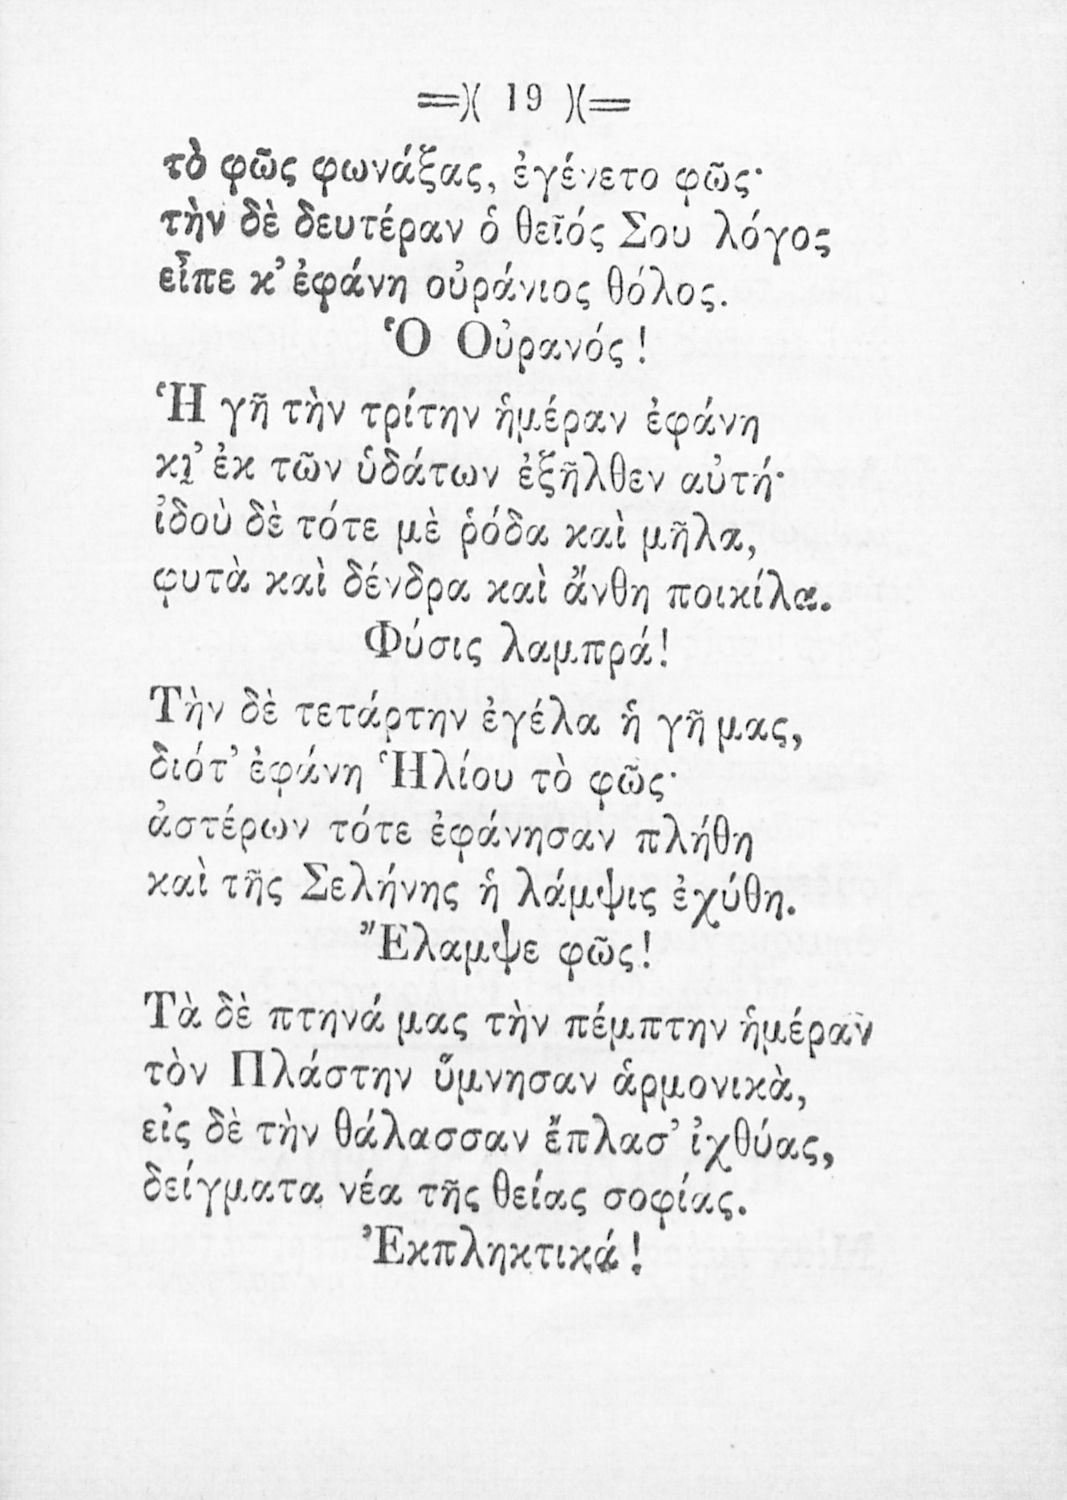 =)( 19 )(=
τὸ φῶς φωνάξας, ἐγένετο φῶς·
τὴν δὲ δευτέραν ὁ θεῖός Σου λόγος
εἶπε κ’ ἐφάνη οὐράνιος θόλος.
Ὁ Οὐρανός!
Ἡ γῆ τὴν τρίτην ἡμέραν ἐφάνη
κι’ ἐκ τῶν ὑδάτων ἐξῆλθεν αὐτή·
ἰδοὺ δὲ τότε μὲ ῥόδα καὶ μῆλα,
φυτὰ καὶ δένδρα καὶ ἄνθη ποικίλα.
Φύσις λαμπρά!
Τὴν δὲ τετάρτην ἐγέλα ἡ γῆ μας,
διότ’ ἐφάνη Ἡλίου τὸ φῶς·
ἀστέρων τότε ἐφάνησαν πλήθη
καὶ τῆς Σελήνης ἡ λάμψις ἐχύθη.
Ἔλαμψε φῶς!
Τὰ δὲ πτηνά μας τὴν πέμπτην ἡμέραν
τὸν Πλάστην ὕμνησαν ἁρμονικὰ,
εἰς δὲ τὴν θάλασσαν ἔπλασ’ ἰχθύας,
δείγματα νέα τῆς θείας σοφίας.
Ἐκπληκτικά!